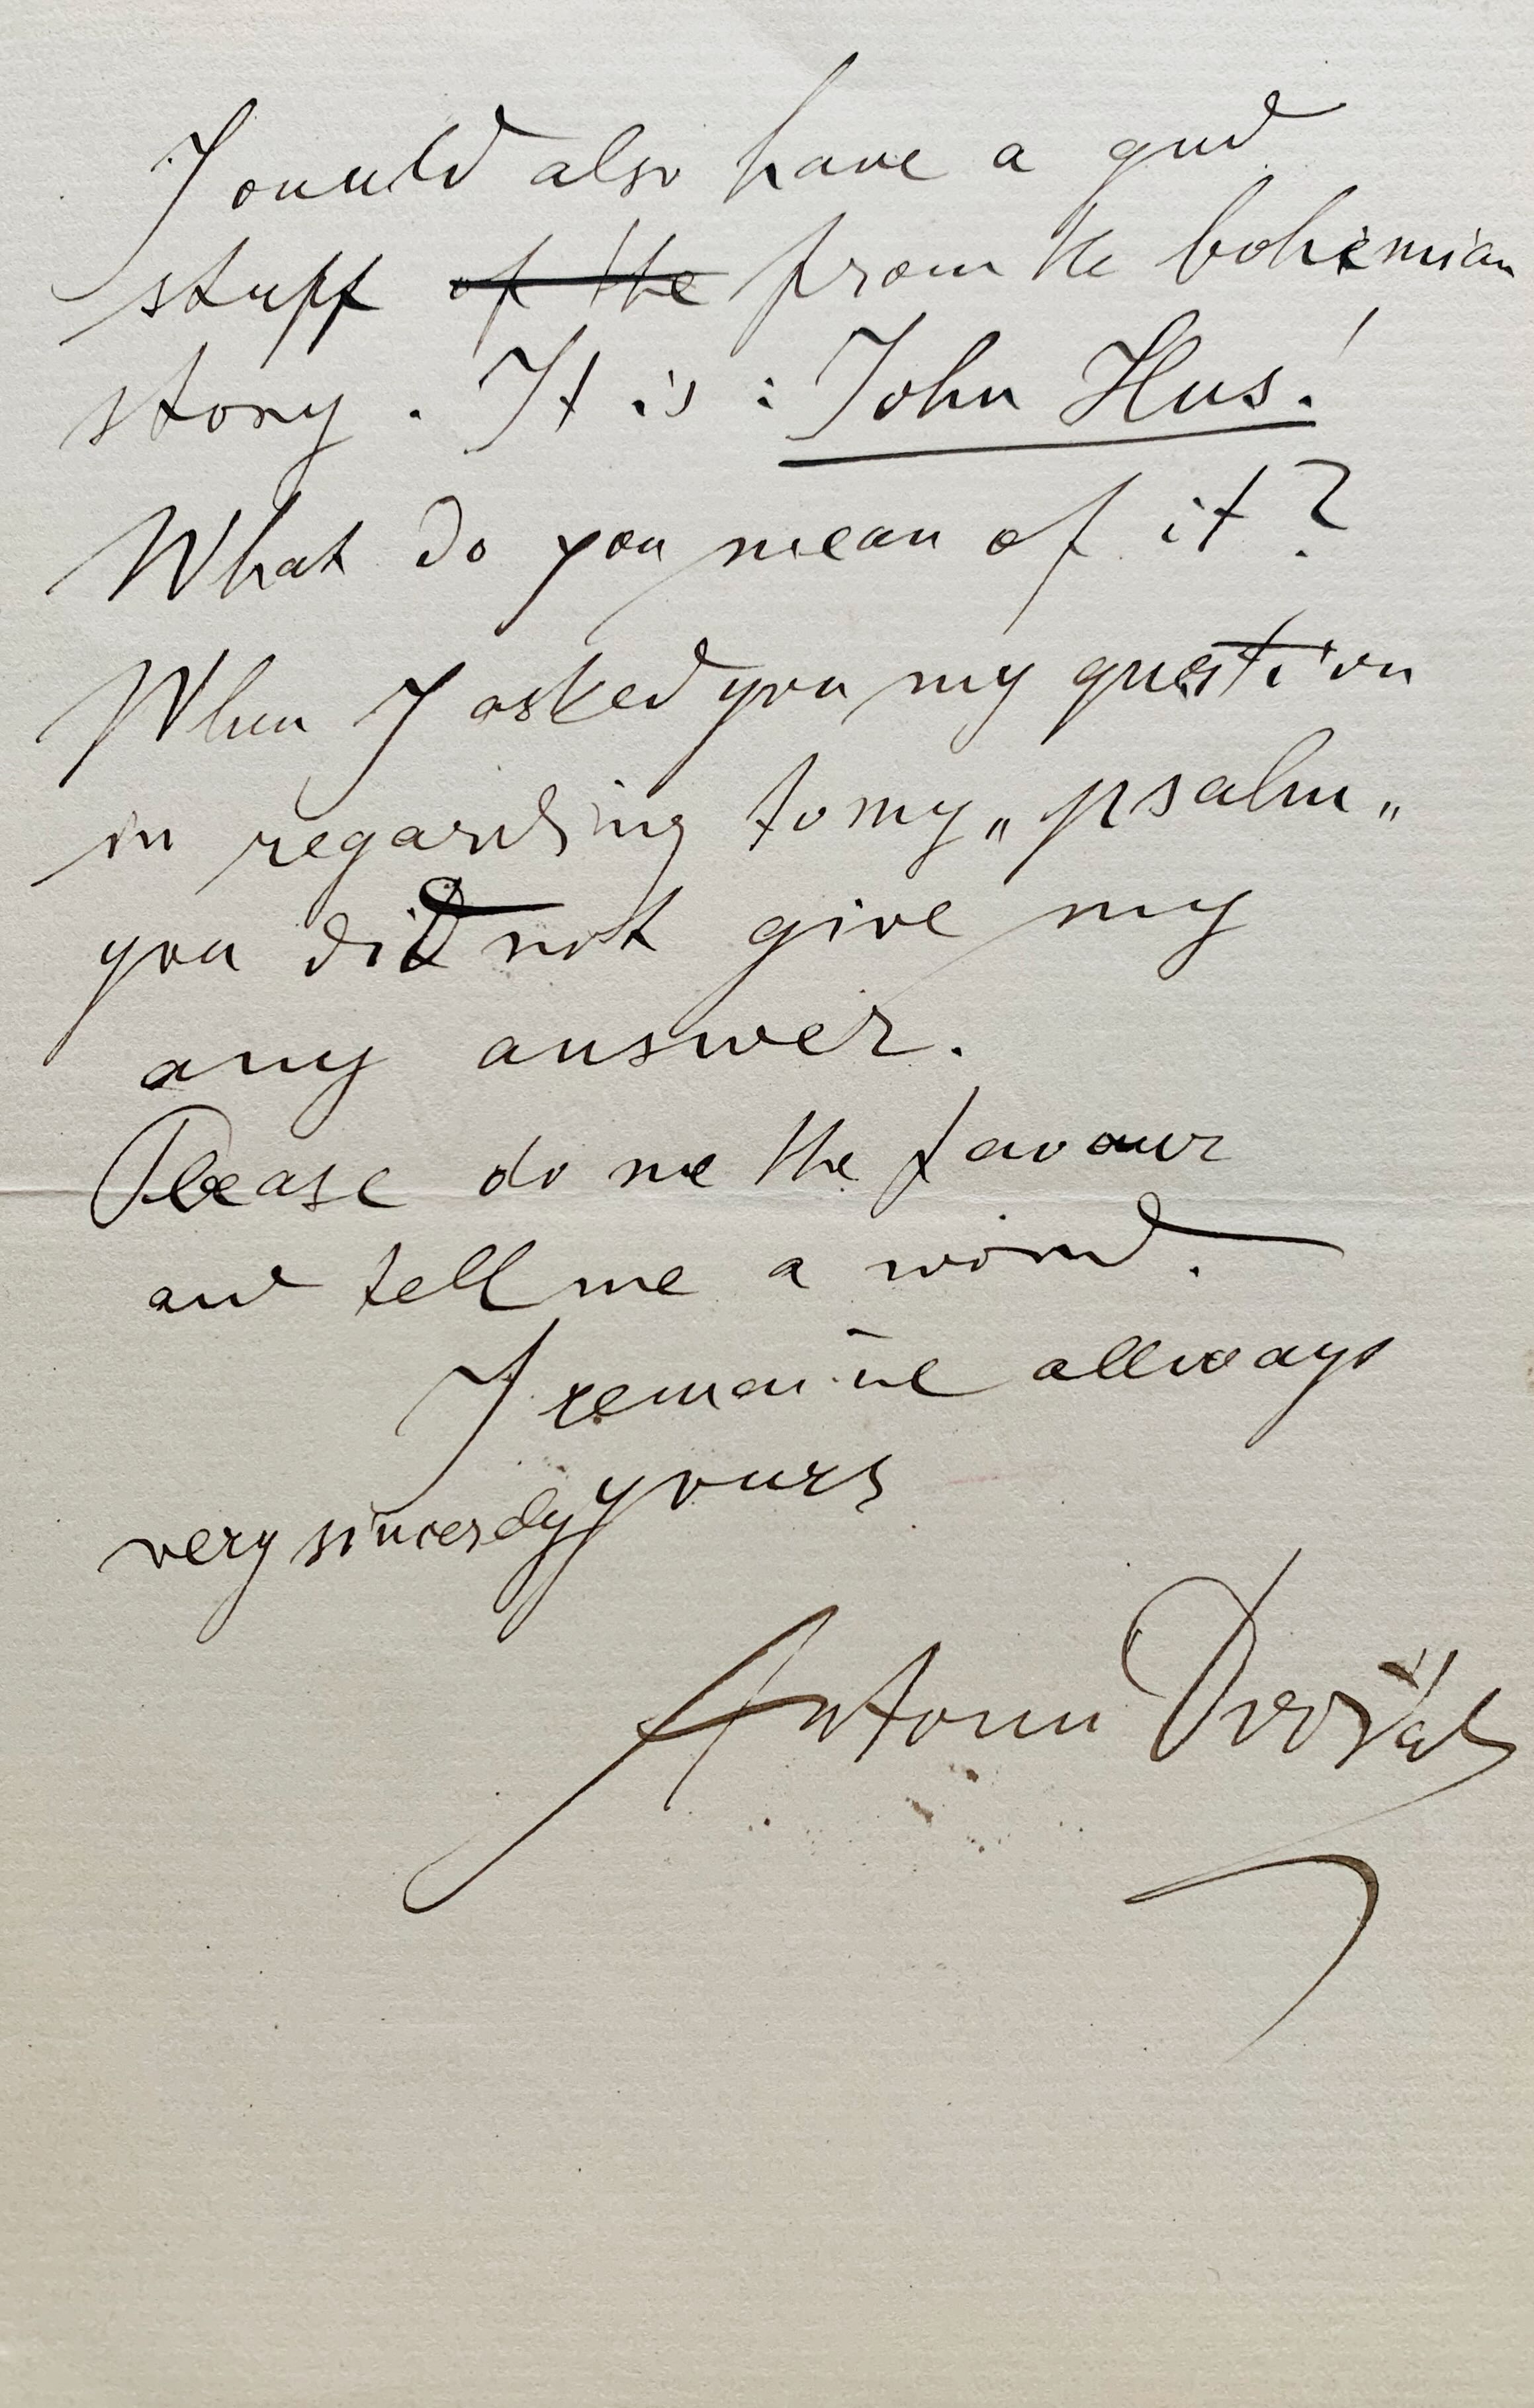 I ould also have a gud
stuff of the from the bohemian
story. It is: John Hus!
What do you mean of it?
When I asked you my question
in regarding to my „psalm„
you did not give my
any answer.
Please do me the favour
and tell me a word.
I remaine allways
very sincerely yours
Antonin Dvořák